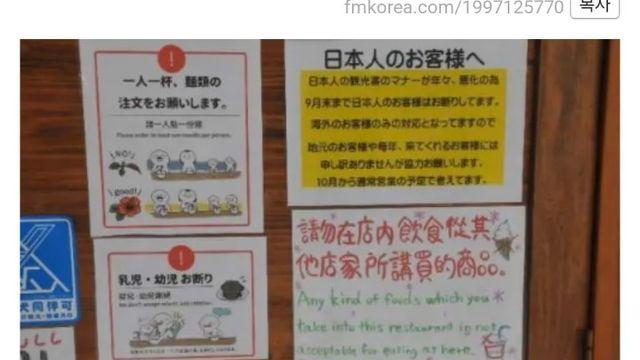 fmkorea.com/1997125770
복사
一人一杯、麺類の
注文をお願いします。
請一人點一份麵
Please order at least one noodle per person.
NO!
good!
乳児・幼児 お断り
We don't accept infants and children.
犬同伴可
日本人のお客様へ
日本人の観光客のマナーが年々、悪化の為
9月末まで日本人のお客様はお断りしてます。
海外のお客様のみの対応となってますので
地元のお客様や毎年、来てくれるお客様には
申し訳ありませんが協力お願いします。
10月から通常営業の予定で考えてます。
請勿在店内飲食從其
他店家所購買的商品。
Any kind of foods which you
take into this restaurant is not
acceptable for eating at here.